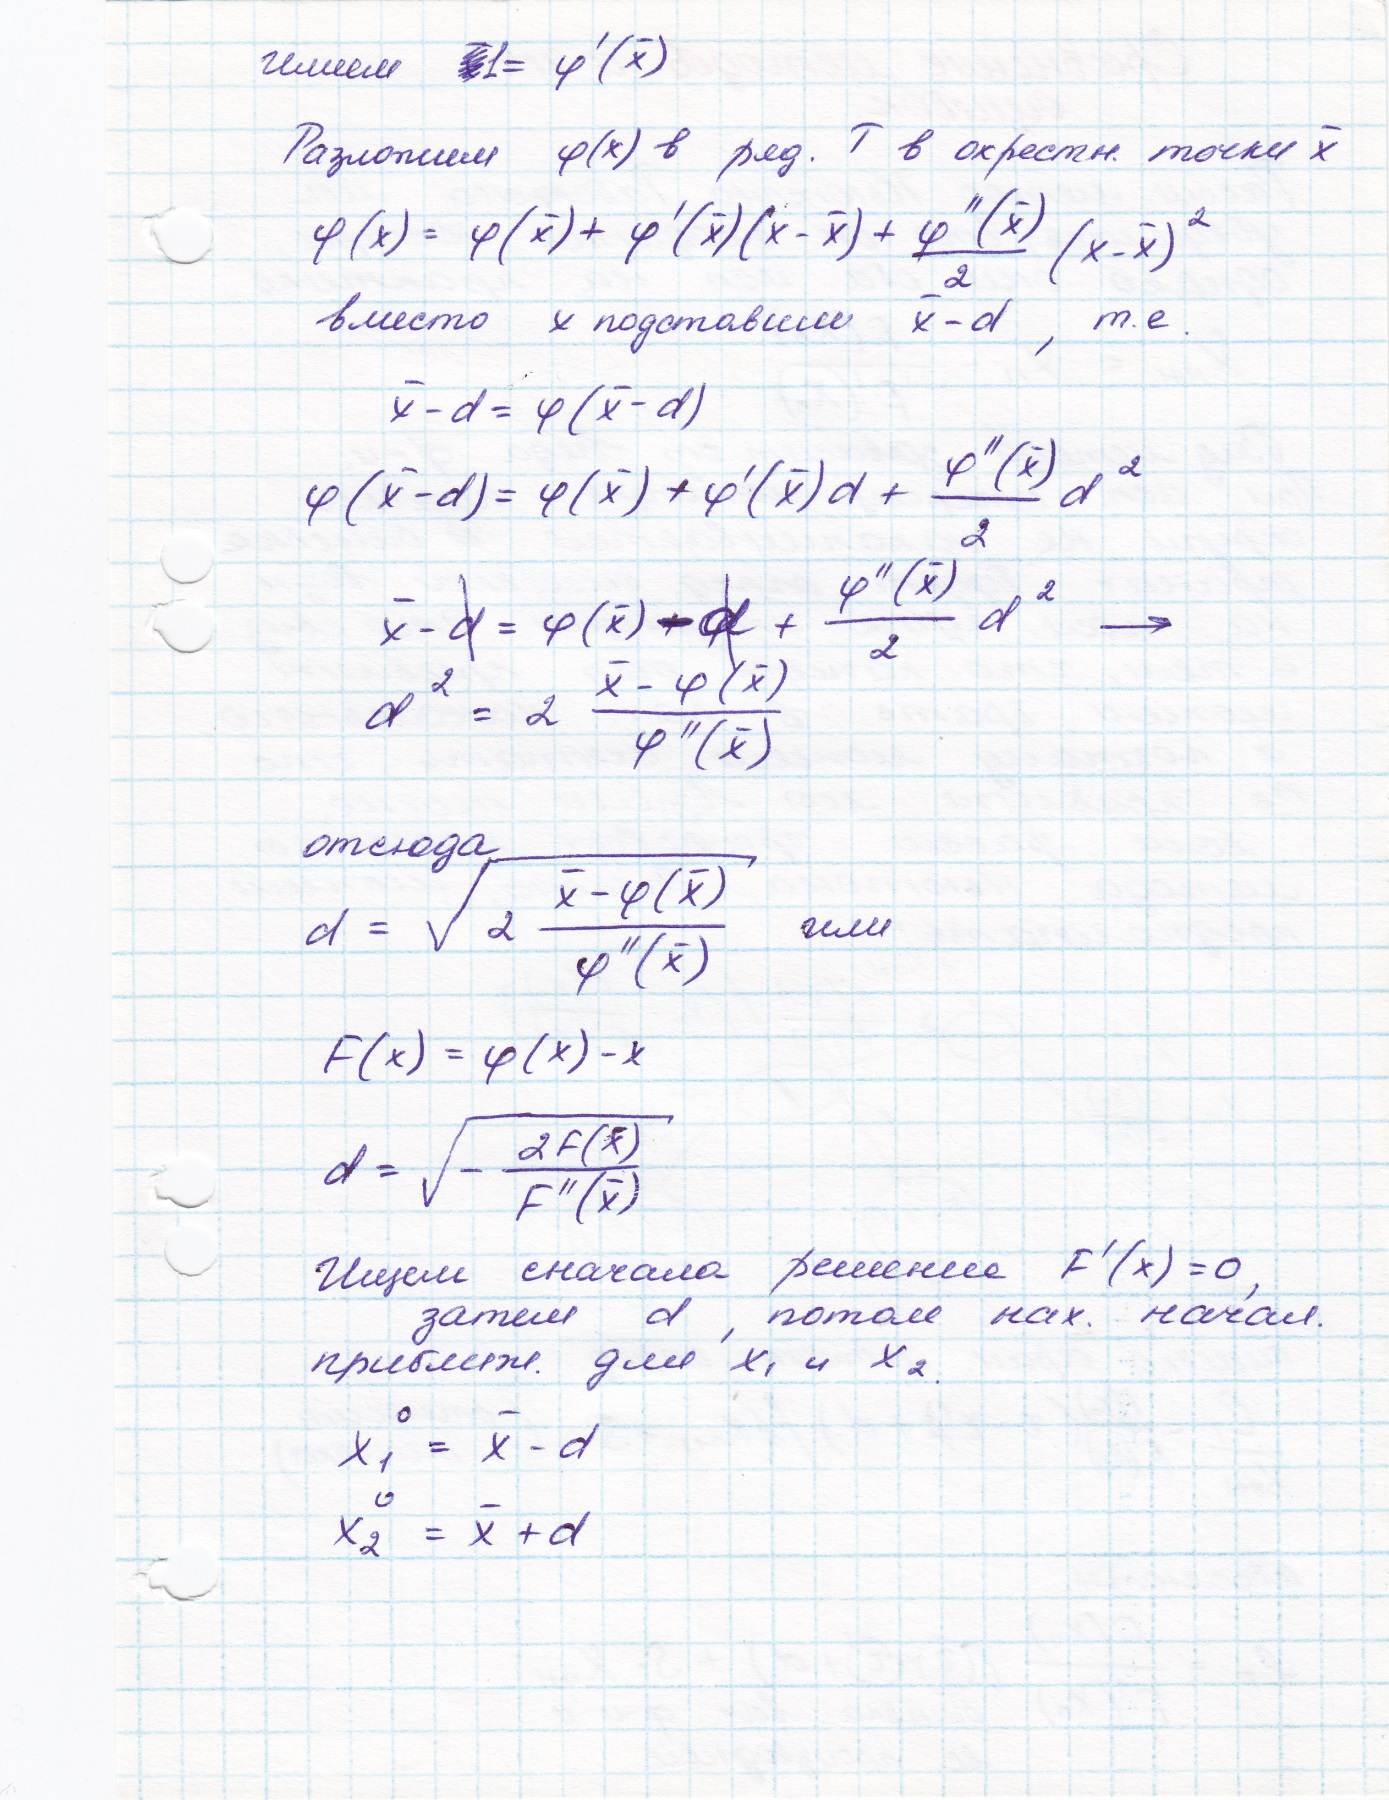 имеем 1 = φ'(x̄)
Разложим φ(x) в ряд. Т в окрестн. точки x̄
φ(x) = φ(x̄) + φ'(x̄)(x - x̄) + φ''(x̄)/2 (x - x̄)²
вместо x подставим x̄ - d, т.е.
x̄ - d = φ(x̄ - d)
φ(x̄ - d) = φ(x̄) - φ'(x̄)d + φ''(x̄)/2 d²
x̄ - d = φ(x̄) - d + φ''(x̄)/2 d² →
d² = 2 (x̄ - φ(x̄))/φ''(x̄)
отсюда
d = √(2 (x̄ - φ(x̄))/φ''(x̄)) или
F(x) = φ(x) - x
d = √(- 2F(x̄)/F''(x̄))
Ищем сначала решение F'(x) = 0,
затем d, потом нах. начал.
приближ. для x₁ и x₂.
x₁⁰ = x̄ - d
x₂⁰ = x̄ + d